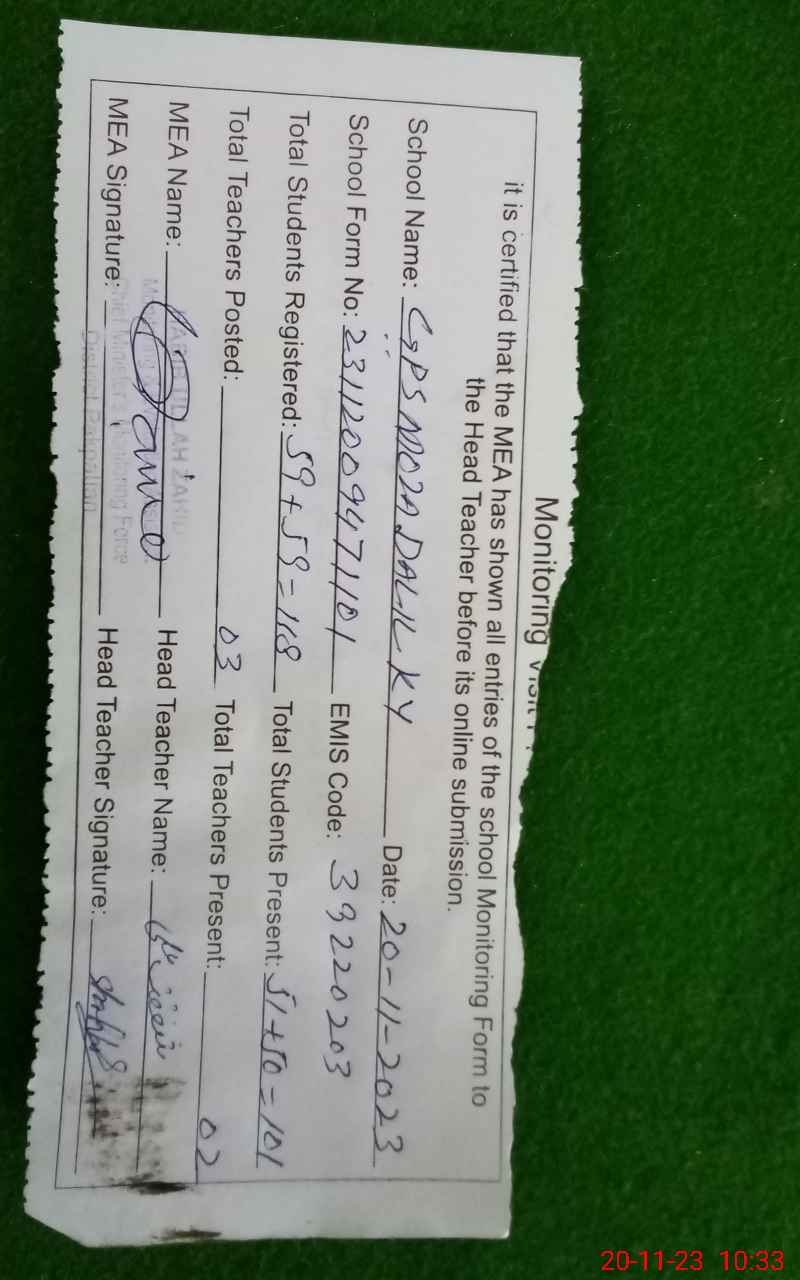 Monitoring
it is certified that the MEA has shown all entries of the school Monitoring Form to
the Head Teacher before its online submission.
School Name: GPS MOZA DALIL KY Date: 20-11-2023
School Form No: 23112009471101 EMIS Code: 39220203
Total Students Registered: 59+59=118 Total Students Present: 51+50=101
Total Teachers Posted: 03 Total Teachers Present: 02
MEA Name: Head Teacher Name:
MEA Signature: Head Teacher Signature:
Chief Minister's Monitoring Force
District Pakpattan
20-11-23 10:33